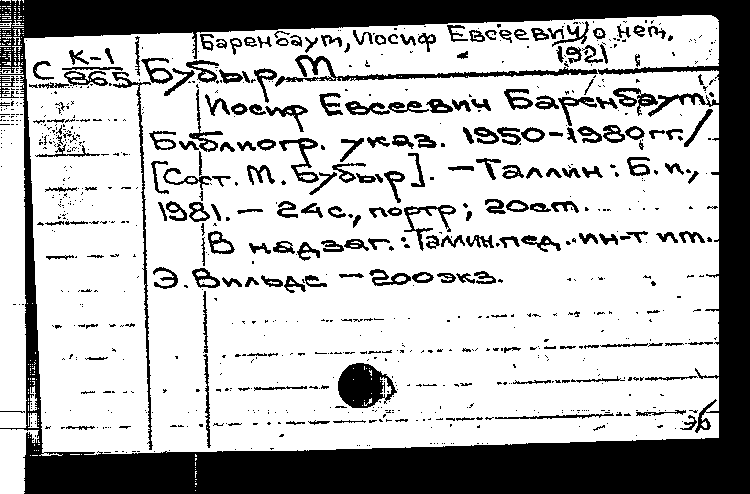 Баренбаум, Иосиф Евсеевич, о нем,
1921
С К-1
865
Бубыр, М
Иосиф Евсеевич Баренбаум:
Библиогр. указ. 1950-1980гг./
[Сост. М. Бубыр]. — Таллин: Б. и.,
1981. — 24с., портр; 20cm.
В надзаг.: Таллин. пед. ин-т им.
Э. Вильде — 200экз.